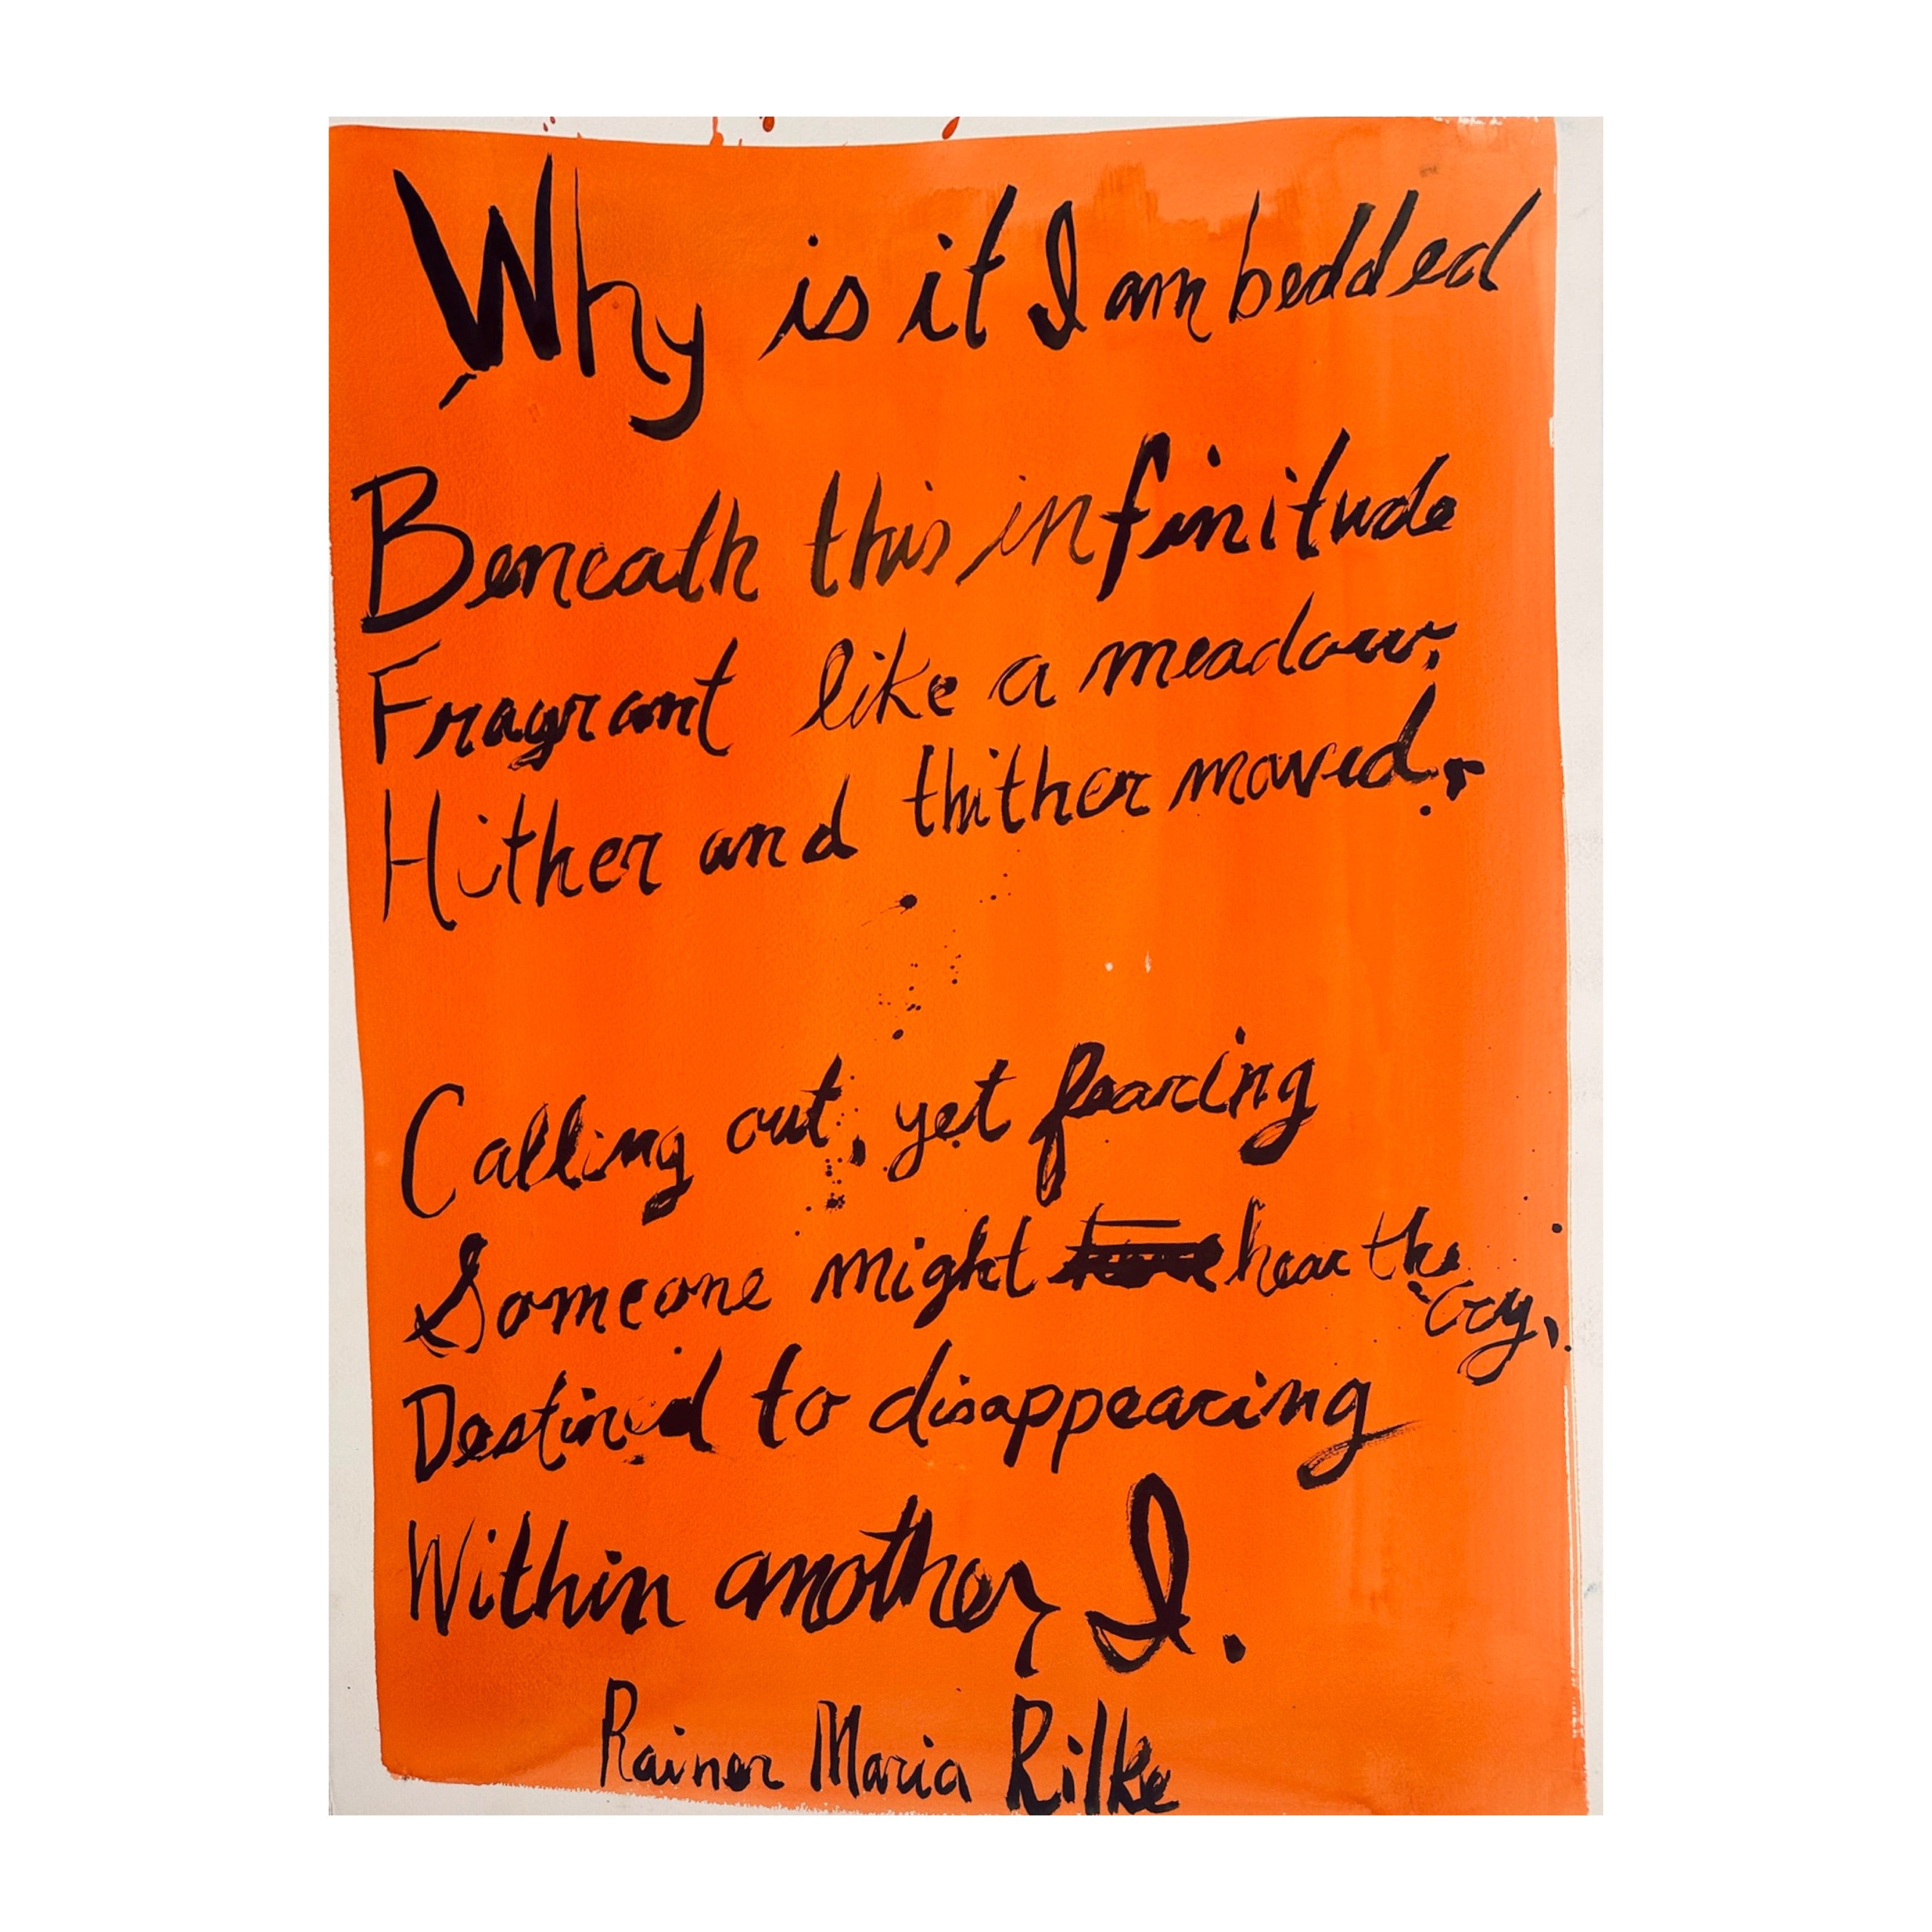 Why is it I am bedded
Beneath this infinitude
Fragrant like a meadow,
Hither and thither moved,
Calling out, yet fearing
Someone might hear the
cry,
Destined to disappearing
Within another I.
Rainer Maria Rilke